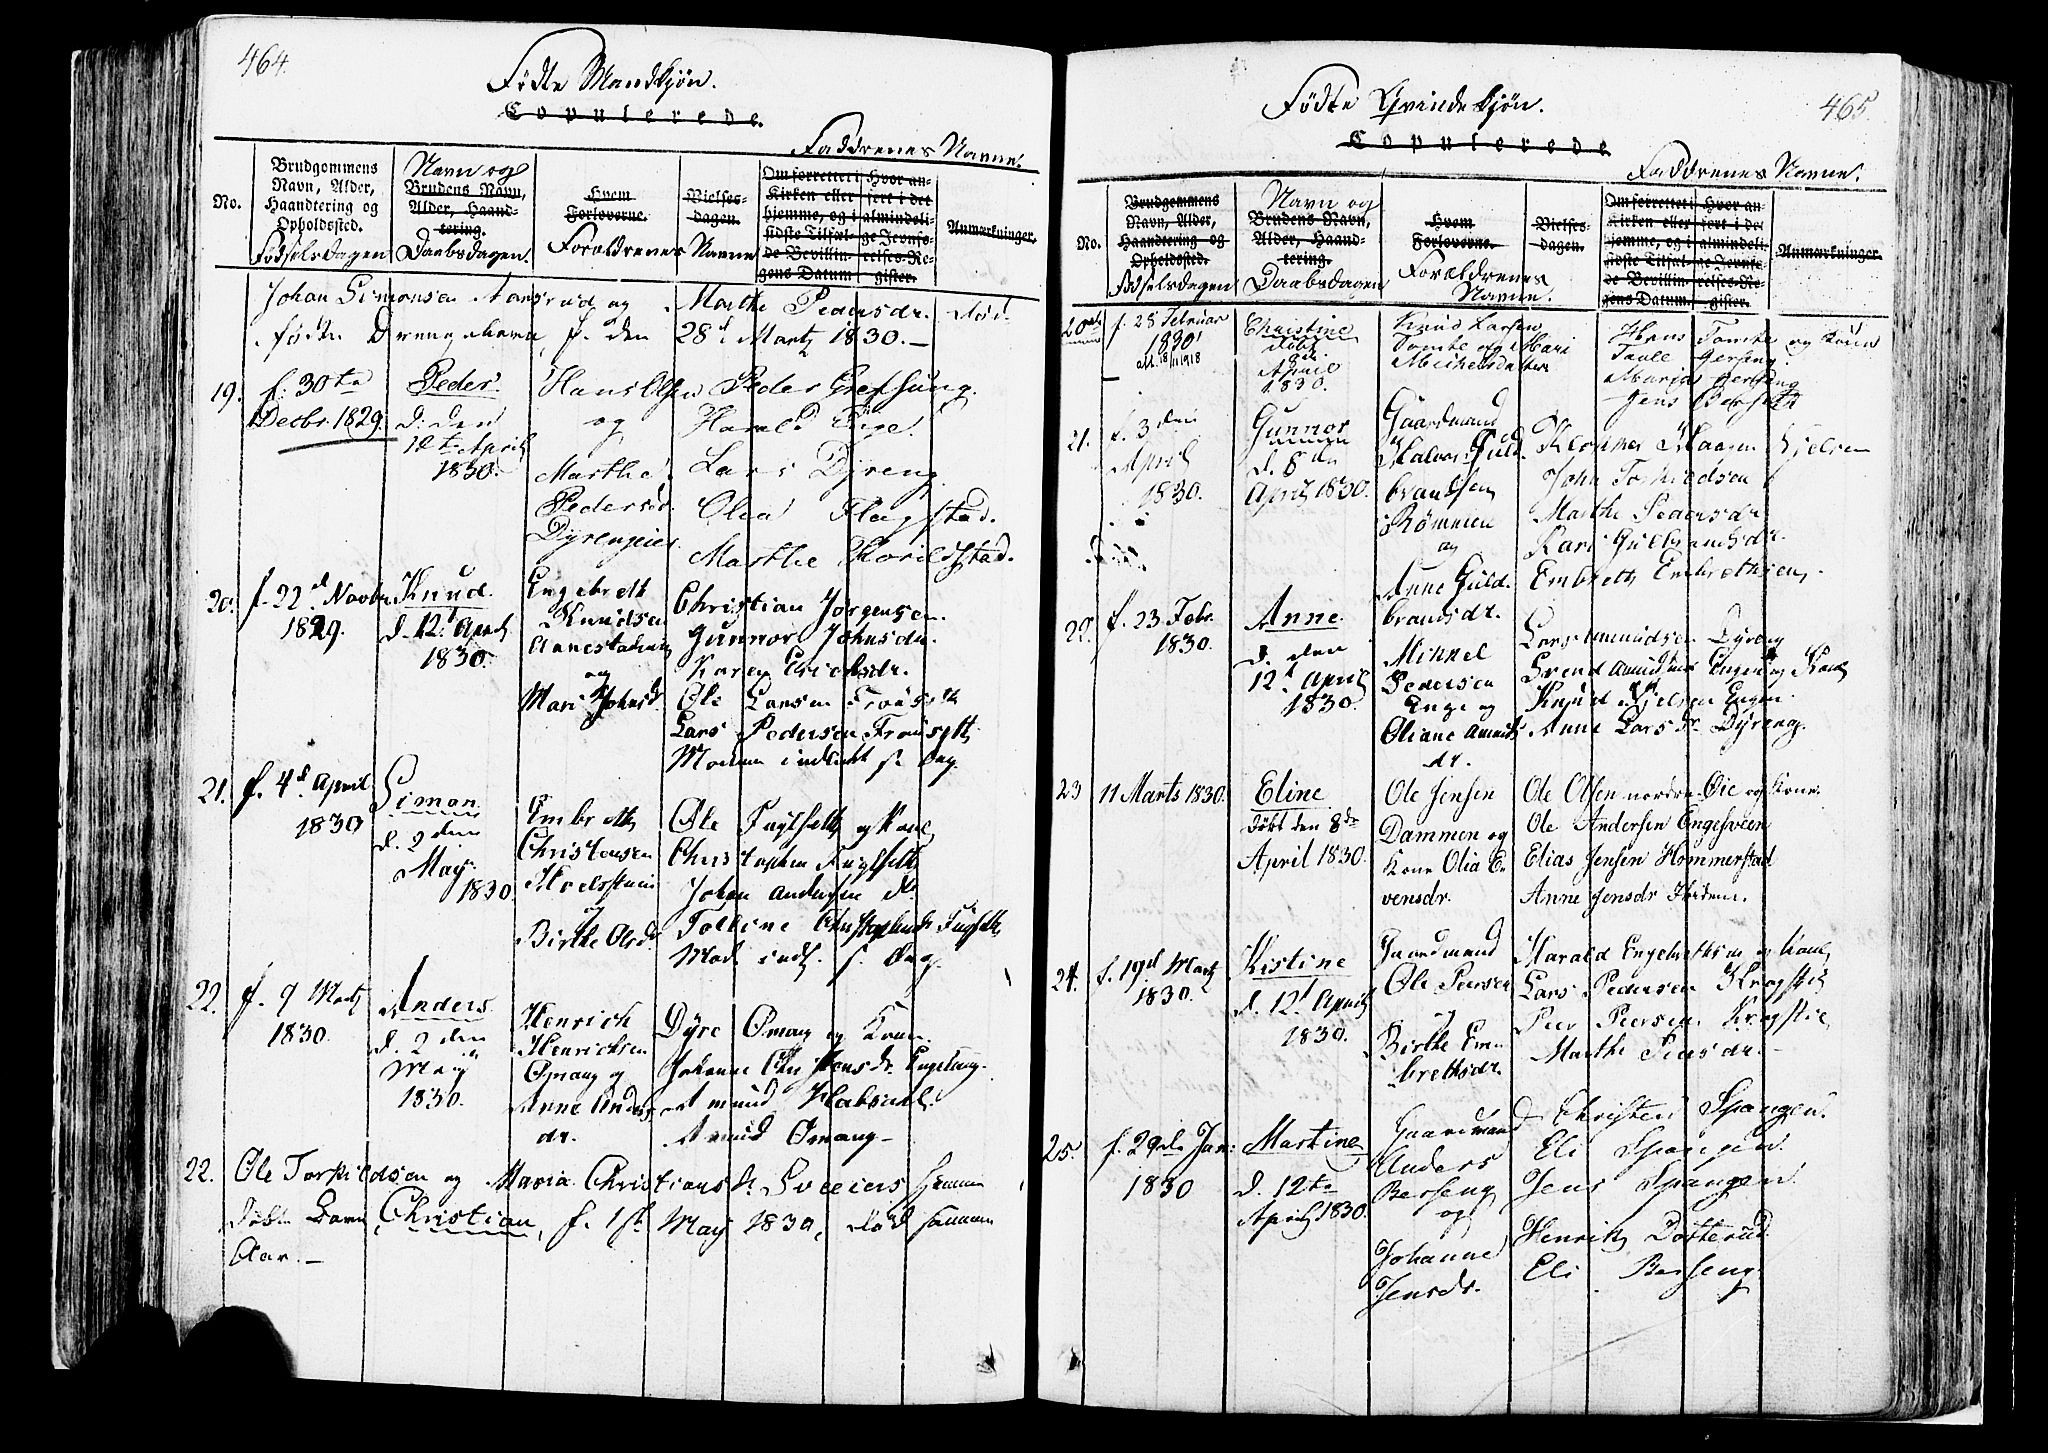 464.
Fødte Mandkjøn.
Copulerede.
Faddrenes Navne.
No.
Brudgommens Navn, Alder, Haandtering og Opholdssted.
Fødselsdagen
Navn og
Brudens Navn, Alder, Haandtering.
Daabsdagen.
Hvem Forloverne.
Forældrenes
Vielsesdagen.
Navne
Om forrettet i Kirken eller hjemme, og i sidste Tilfælde Bevillingens Datum
Hvor anført i det almindelige Jevnførelses-Register.
Anmærkninger.
Johan Simonsen Aansrud og Marthe Pedersdr. død-
fødte Drengebarn, f. den 28d Martz 1830.—
19. f. 30te
Decbr. 1829.
Peder
d. den
12te April
1830.
Hans Olsen
og
Marthe
Pedersd.
Dyrengeier
Peder Grefsung.
Harald
Lars Dyreng
Olea Flagstad.
Marthe Thorildstad.
20. f. 22d Novbr
1829.
Knud.
d. 12t April
1830.
Engebreth
Knudsen
og
Mari Johnsd.
Christian Jørgensen
Gunnor Johnsdr.
Karen Erichsdr.
Ole Larsen
Lars Pedersen
21. f. 4d April
1830
Simon.
d. 2den
May
1830.
Embreth
Christensen
og
Birthe Olsdr
Ole Fuglseth og Kone
Christopher Fuglseth
Johan Andersen do
22. f. 9 Martz
1830.
Anders.
d. 2den
May
1830.
Henrich
Henrichsen
Ømang og
Anne Anders
dr.
Dyre Ømang og Kone.
Johanne Christensdr. Engelung.
Amund
Amund Ømang—
22. Ole Torkildsen og Maria Christiansdr. Sveeiers hjemme
døbte Barn Christian, f. 1st May 1830, død samme
Aar.—
465
Fødte Qvindekjøn.
Copulerede
Faddrenes Navne.
No.
Brudgommens Navn, Alder, Haandtering og Opholdssted.
Fødselsdagen
Navn og
Brudens Navn, Alder, Haandtering.
Daabsdagen
Hvem Forloverne.
Forældrenes
Navne.
Vielsesdagen.
Om forrettet i Kirken eller hjemme, og i sidste Tilfælde Bevillingens Datum
Hvor anført i det almindelige Jevnførelses-Register.
Anmærkninger.
20 f. 28 Februar
1830
Christine
døbt
April
1830.
Knud Larsen
Tomte og Mari
Michelsdatter
Hans Tomte og Kone
Maria Gerseng
Jens
21. f. 3den
April
1830.
Gunnor
d. 8de
April 1830.
Gaardmand
Halvor Guld
brandsen
Rømmen
og
Anne Guld
brandsdr.
Marthe Pedersdr
Kari Gulbrandsdr.
Embreth Embrethsen.
22. f. 23 Febr.
1830.
Anne.
d. den
12t April
1830.
Mikkel
Pedersen
Enge og
Oliane Amunds
dr.
Lars Amundsen Dyreng
Svend Amundsen Engen og Kone
Knud Nielsen Engen.
Anne Larsdr Dyreng.
23 11 Marts 1830.
Eline
døbt den 8de
April 1830.
Ole Jensen
Dammen og
Kone Olia E
vensdr.
Ole Olsen nordre Øie og Kone.
Ole Andersen Engesveen
Elias Jensen Hommerstad
Anne Jensdr Ibidem.
24. f. 19d Martz
1830.
Kistine
d. 12t April
1830.
Gaardmand
Ole Peersen
og
Birthe Em
brethsdr.
Harald Engebrethsen og Kone
Lars Pedersen Krogstie
Peer Peersen Krogstie
Marthe Peersdr.—
25. f. 29de Jan:
1830
Martine
d. 12te
April 1830.
Gaardmand
Anders
Berseng
og
Johanne
Jensdr.
Christen Spangen.
Eli Spangen
Jens Spangen.
Henrik Dotterud.
Eli Berseng.